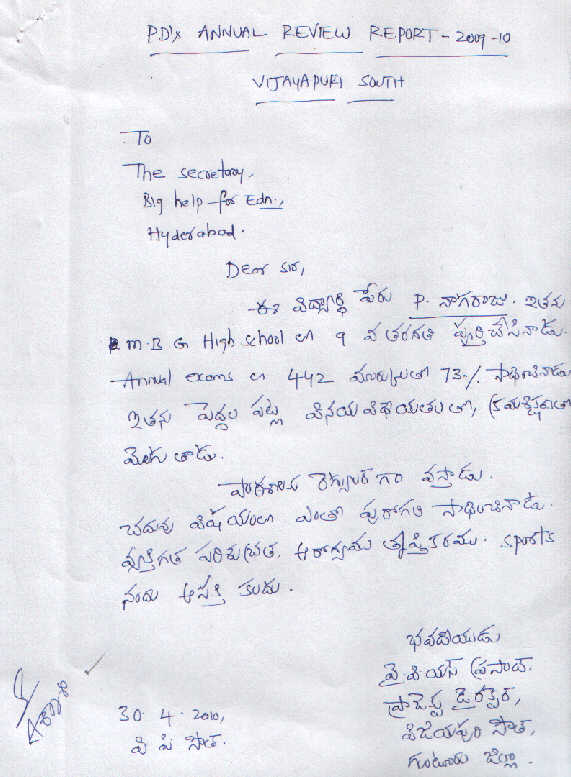 PD's ANNUAL REVIEW REPORT - 2009-10
VIJAYAPURI SOUTH
To
The secretary,
Big help - for Edn.,
Hyderabad.
Dear సర్,
ఈ విద్యార్థి పేరు P. నాగరాజు. ఇతను
Z.P.H High school లో 9 వ తరగతి పూర్తిచేసినాడు.
Annual exams లో 442 మార్కులతో 73% సాధించినాడు
ఇతను పెద్దల పట్ల వినయ విధేయతలతో, క్రమశిక్షణతో
మెలుగుతాడు.
పాఠశాలకు రెగ్యులర్ గా వస్తాడు.
చదువు విషయంలో ఎంతో పురోగతి సాధించినాడు.
వ్యక్తిగత పరిశుభ్రత, ఆరోగ్యము తృప్తికరము. sports
నందు ఆసక్తి కలదు.
భవదీయుడు
వై పి యస్ ప్రసాద్.
ప్రాజెక్టు డైరెక్టర్,
విజయపురి సౌత్,
గుంటూరు జిల్లా.
30.4.2010,
వి పి సౌత్.